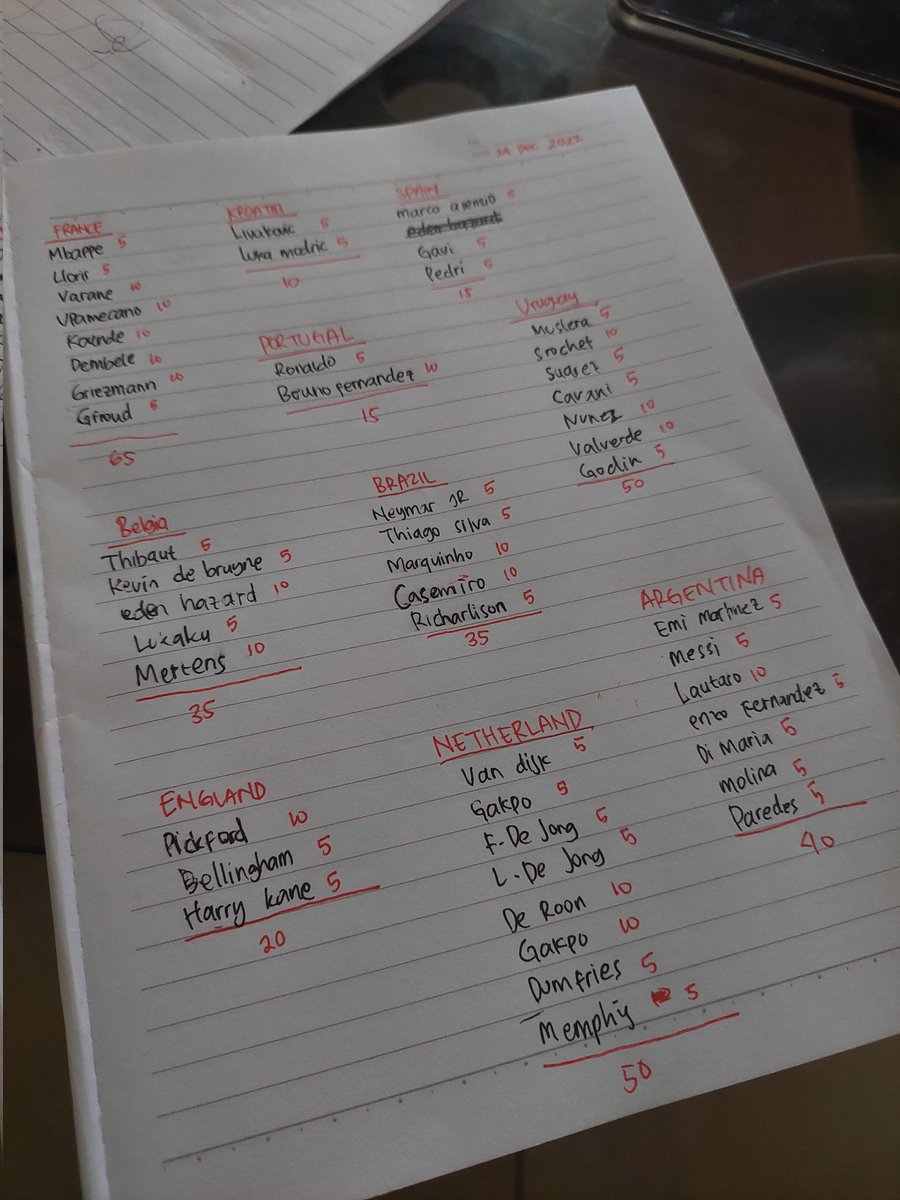 24 Dec 2022
FRANCE
Mbappe 5
Lloris 5
Varane 10
UPamecano 10
Kounde 10
Dembele 10
Griezmann 10
Giroud 5
65
KROATIA
Livakovic 5
Luka modric 5
10
SPAIN
Marco asensio 5
eden hazard
Gavi 5
Pedri 5
15
PORTUGAL
Ronaldo 5
Bruno Fernandez 10
15
Uruguay
Muslera 5
Srochet 10
Suarez 5
Cavani 5
Nunez 10
Valverde 10
Godin 5
50
Belgia
Thibaut 5
Kevin de bruyne 5
eden hazard 10
Lukaku 5
Mertens 10
35
BRAZIL
Neymar JR 5
Thiago Silva 5
Marquinho 10
Casemiro 10
Richarlison 5
35
ARGENTINA
Emi Martinez 5
Messi 5
Lautaro 10
enzo Fernandez 5
Di Maria 5
Molina 5
Paredes 5
40
ENGLAND
Pickford 10
Bellingham 5
Harry kane 5
20
NETHERLAND
Van dijk 5
Gakpo 5
F. De Jong 5
L. De Jong 5
De Roon 10
Gakpo 10
Dumfries 5
Memphis 5
50